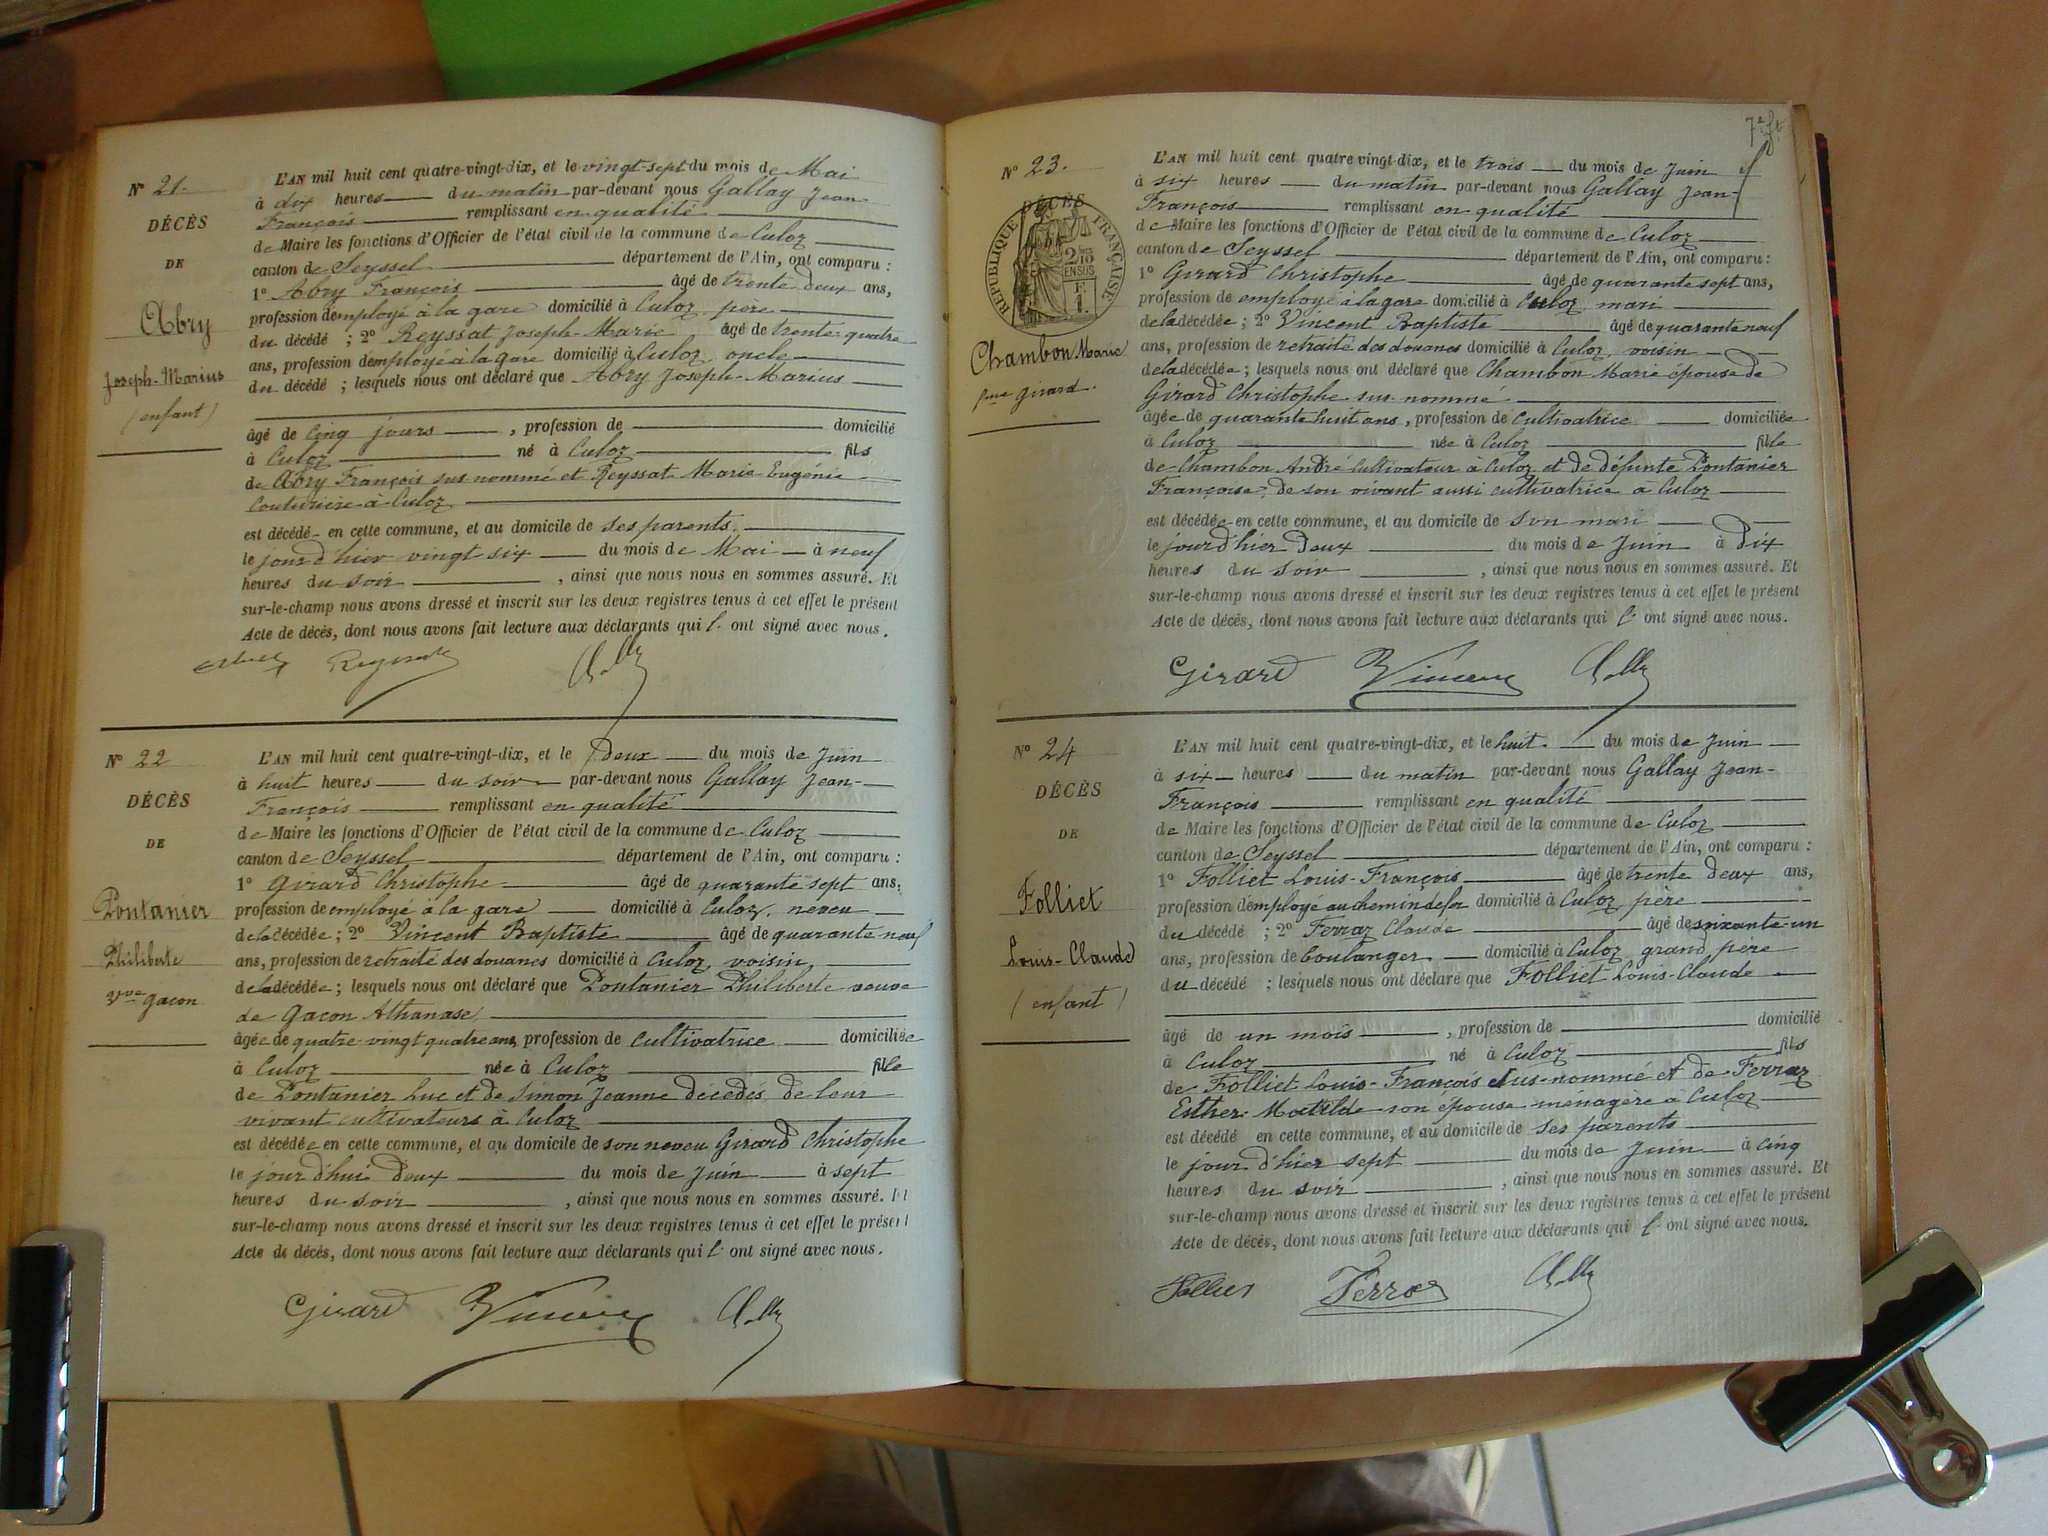 Nº 21.
DÉCÈS
DE
Abry
Joseph-Marius
(enfant)
L'AN mil huit cent quatre-vingt-dix, et le vingt-sept du mois de Mai
à dix heures du matin par-devant nous Gallay Jean
François remplissant en qualité
de Maire les fonctions d'Officier de l'état civil de la commune de Culoz
canton de Seyssel département de l'Ain, ont comparu :
1º Abry François âgé de trente deux ans,
profession d'employé à la gare domicilié à Culoz, père
du décédé ; 2º Reyssat Joseph-Marie âgé de trente-quatre
ans, profession d'employé à la gare domicilié à Culoz, oncle
du décédé ; lesquels nous ont déclaré que Abry Joseph-Marius
âgé de cinq jours , profession de domicilié
à Culoz né à Culoz fils
de Abry François sus nommé et Reyssat Marie Eugénie
Couturière à Culoz
est décédé en cette commune, et au domicile de ses parents.
le jour d'hier vingt six du mois de Mai à neuf
heures du soir , ainsi que nous nous en sommes assuré. Et
sur-le-champ nous avons dressé et inscrit sur les deux registres tenus à cet effet le présent
Acte de décès, dont nous avons fait lecture aux déclarants qui l' ont signé avec nous.
Nº 22
DÉCÈS
DE
Pontanier
Philiberte
Vve Gacon
L'AN mil huit cent quatre-vingt-dix, et le deux du mois de Juin
à huit heures du soir par-devant nous Gallay Jean-
François remplissant en qualité
de Maire les fonctions d'Officier de l'état civil de la commune de Culoz
canton de Seyssel département de l'Ain, ont comparu :
1º Girard Christophe âgé de quarante sept ans,
profession de employé à la gare domicilié à Culoz, neveu
de la décédée ; 2º Vincent Baptiste âgé de quarante neuf
ans, profession de retraité des douanes domicilié à Culoz, voisin,
de la décédée ; lesquels nous ont déclaré que Pontanier Philiberte veuve
de Gacon Athanase
âgée de quatre vingt quatre ans, profession de cultivatrice domiciliée
à Culoz née à Culoz fille
de Pontanier Luc et de Simon Jeanne décédés, de leur
vivant cultivateurs à Culoz
est décédée en cette commune, et au domicile de son neveu Girard Christophe
le jour d'hui deux du mois de Juin à sept
heures du soir , ainsi que nous nous en sommes assuré. Et
sur-le-champ nous avons dressé et inscrit sur les deux registres tenus à cet effet le présent
Acte de décès, dont nous avons fait lecture aux déclarants qui l' ont signé avec nous.
Girard Vincent
Nº 23.
DÉCÈS
RÉPUBLIQUE FRANÇAISE
2/10 EN SUS
Chambon Marie
fme Girard.
L'AN mil huit cent quatre-vingt-dix, et le trois du mois de Juin
à six heures du matin par-devant nous Gallay Jean-
François remplissant en qualité
de Maire les fonctions d'Officier de l'état civil de la commune de Culoz
canton de Seyssel département de l'Ain, ont comparu :
1º Girard Christophe âgé de quarante sept ans,
profession de employé à la gare domicilié à Culoz, mari
de la décédée ; 2º Vincent Baptiste âgé de quarante neuf
ans, profession de retraité des douanes domicilié à Culoz, voisin
de la décédée ; lesquels nous ont déclaré que Chambon Marie épouse de
Girard Christophe sus-nommé
âgée de quarante huit ans, profession de Cultivatrice domiciliée
à Culoz née à Culoz fille
de Chambon André Cultivateur à Culoz et de défunte Pontanier
Françoise, de son vivant aussi cultivatrice à Culoz
est décédée en cette commune, et au domicile de son mari
le jour d'hier deux du mois de Juin à dix
heures du soir , ainsi que nous nous en sommes assuré. Et
sur-le-champ nous avons dressé et inscrit sur les deux registres tenus à cet effet le présent
Acte de décès, dont nous avons fait lecture aux déclarants qui l' ont signé avec nous.
Girard Vincent
Nº 24
DÉCÈS
DE
Folliet
Louis-Claude
(enfant)
L'AN mil huit cent quatre-vingt-dix, et le huit. du mois de Juin
à six heures du matin par-devant nous Gallay Jean-
François remplissant en qualité
de Maire les fonctions d'Officier de l'état civil de la commune de Culoz
canton de Seyssel département de l'Ain, ont comparu :
1º Folliet Louis-François âgé de trente deux ans,
profession d'employé au chemin de fer domicilié à Culoz, père
du décédé ; 2º Ferraz Claude âgé de soixante-un
ans, profession de boulanger domicilié à Culoz, grand père
du décédé ; lesquels nous ont déclaré que Folliet Louis-Claude
âgé de un mois , profession de domicilié
à Culoz né à Culoz fils
de Folliet Louis-François sus-nommé et de Ferraz
Esther Matilde son épouse ménagère à Culoz
est décédé en cette commune, et au domicile de ses parents
le jour d'hier sept du mois de Juin à cinq
heures du soir , ainsi que nous nous en sommes assuré. Et
sur-le-champ nous avons dressé et inscrit sur les deux registres tenus à cet effet le présent
Acte de décès, dont nous avons fait lecture aux déclarants qui l' ont signé avec nous.
Folliet Ferraz